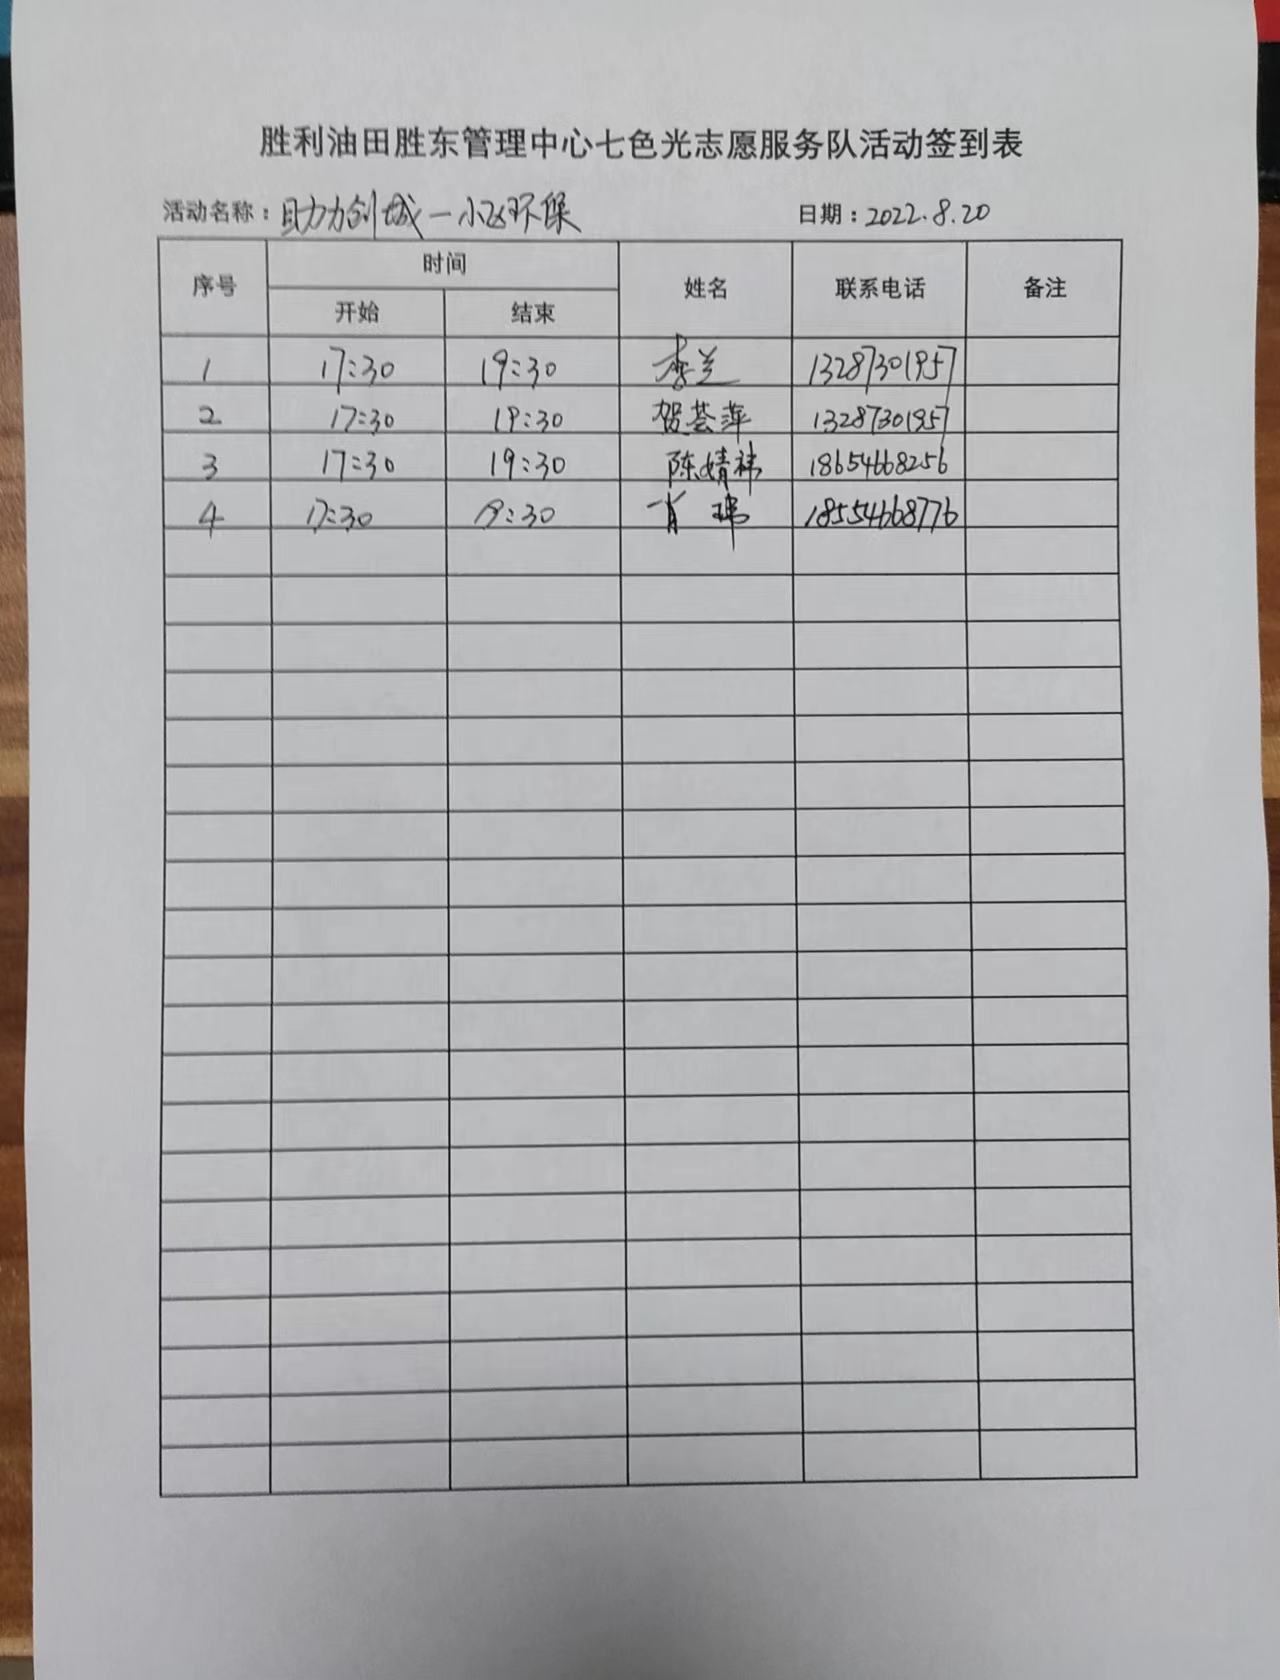 胜利油田胜东管理中心七色光志愿服务队活动签到表
活动名称：助力创城一小飞环保 日期：2022.8.20
序号 时间 姓名 联系电话 备注
开始 结束
1 17:30 19:30 李兰 13287301957
2 17:30 19:30 贺荟萍 13287301957
3 17:30 19:30 陈婧祎 18654668256
4 17:30 19:30 肖 18554668776